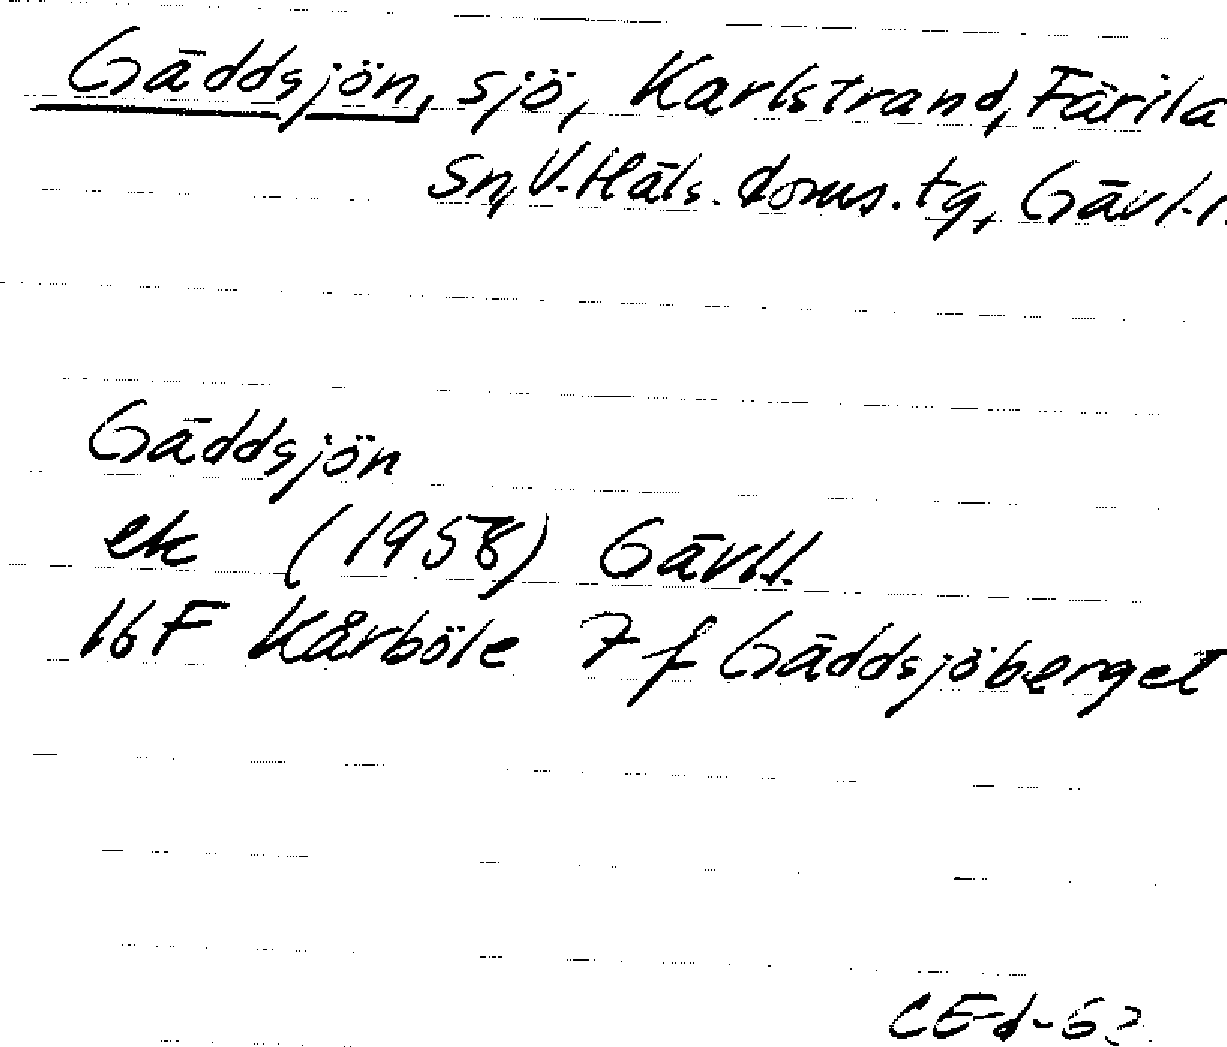 Gäddsjön, sjö, Karlstrand, Färila
sn, V. Häls. doms. tg, Gävl. l.
Gäddsjön
ek (1958) Gävl.l.
16F Kårböle 7 f Gäddsjöberget